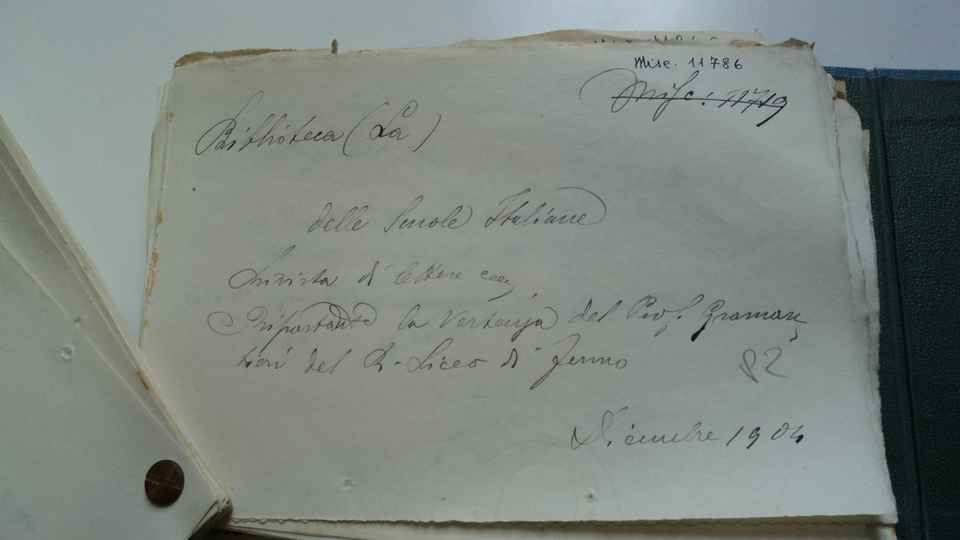 Misc. 11786
Misc: 11719
Biblioteca (La)
delle Scuole Italiane
Rivista di lettere ecc.
Riportante la Vertenza del Prof. Graman
tieri del R. Liceo di Fermo
82
Dicembre 1904